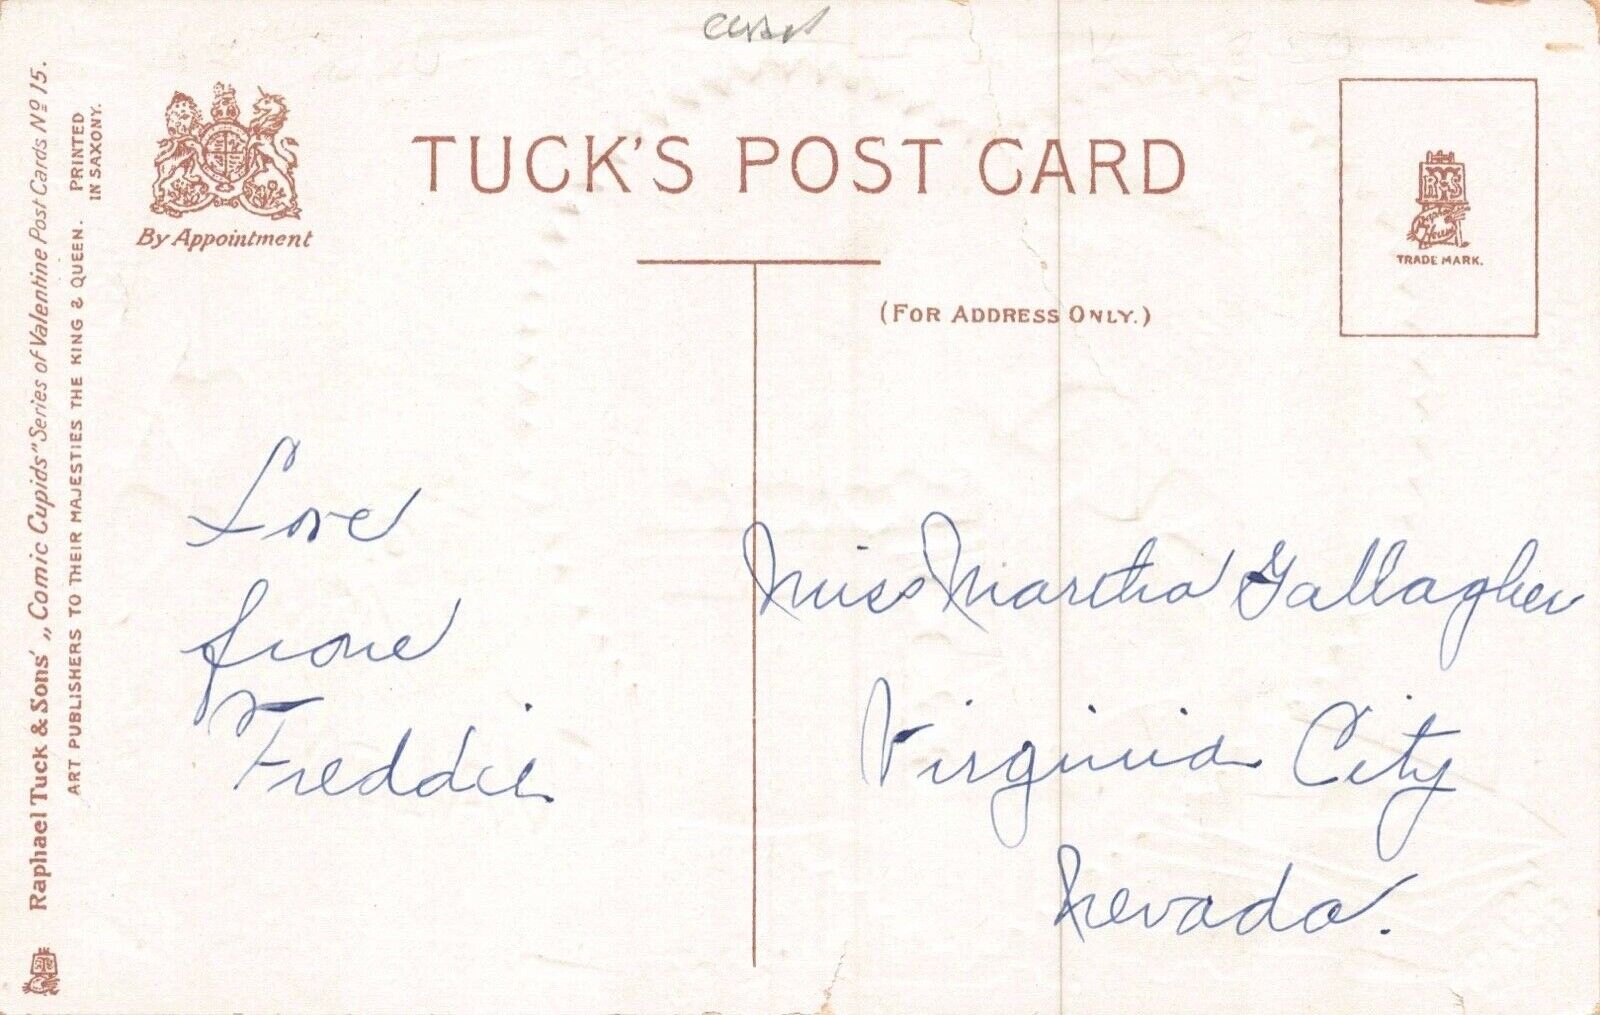 TUCK'S POST CARD
By Appointment
(FOR ADDRESS ONLY.)
TRADE MARK.
Raphael Tuck & Sons' „Comic Cupids" Series of Valentine Post Cards Nº 15.
ART PUBLISHERS TO THEIR MAJESTIES THE KING & QUEEN.
PRINTED
IN SAXONY.
Love
from
Freddie
Miss Martha Gallagher
Virginia City
Nevada.